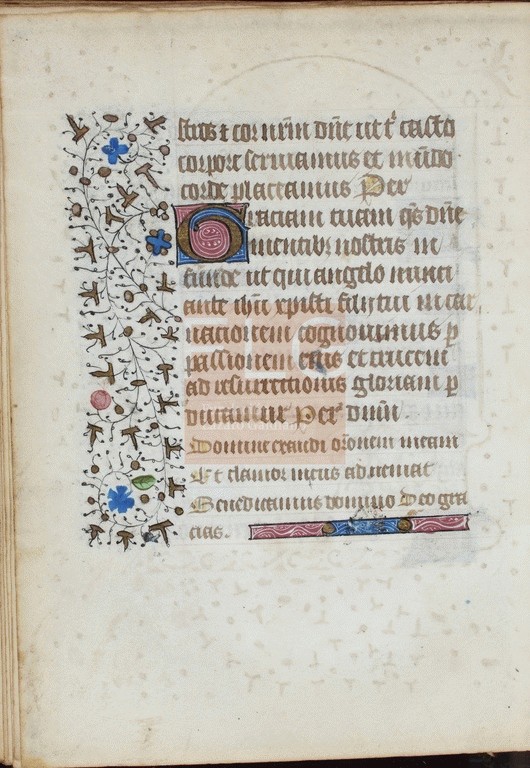 stros ⁊ cor nr̄m dn̄e ut t' casto
corpore seruiamus et mūdo
corde placeamus Per
Graciam tuam qs̄ dn̄e
mentibꝫ nostris in
funde ut qui angelo nunci
ante ihū xpisti filij tui incar
nacionem cognouimus p
passionem eius et crucem
ad resurrectionis gloriam p
ducamur Per dnm̄
Domine exaudi or̄onem meam
Et clamor meus ad ueniat
Benedicamus domino Deo gra
cias.